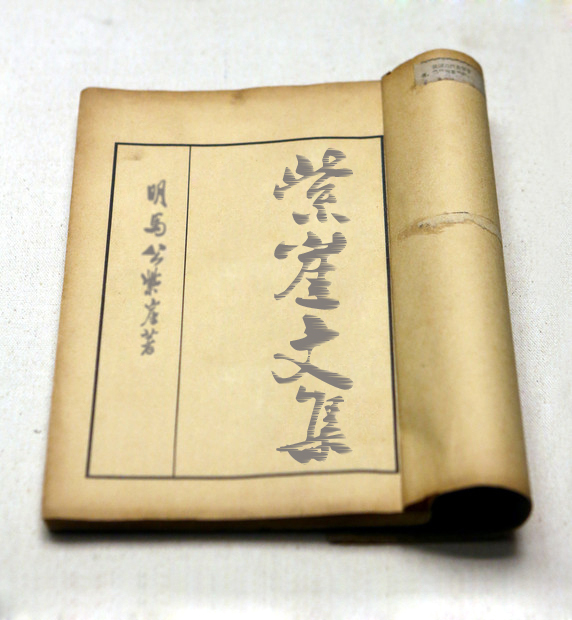 紫崖文集
明馬公紫崖著